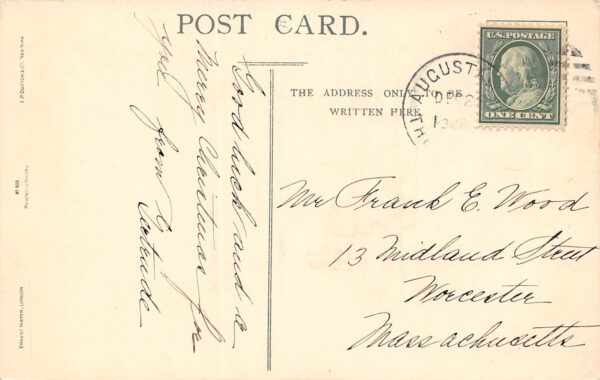 POST CARD.
THE ADDRESS ONLY TO BE
WRITTEN HERE
U.S. POSTAGE
ONE CENT
AUGUSTA
Good luck and a
Merry Christmas for
you from
Gertrude
Mr Frank E. Wood
13 Midland Street
Worcester
Massachusetts
E.P. DUTTON & CO. NEW YORK.
ERNEST NISTER, LONDON